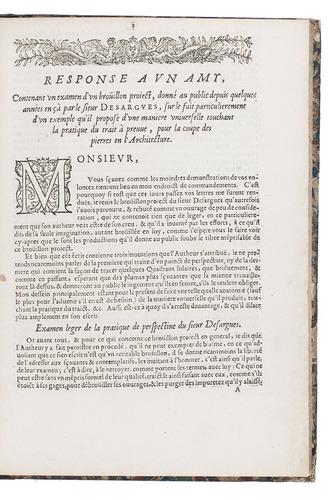 RESPONSE A VN AMY,
Contenant vn examen d'vn broüillon proiect, donné au public depuis quelques
années en çà par le sieur DESARGVES, sur le fait particulierement
d'vn exemple qu'il propose d'vne maniere vniuerselle touchant
la pratique du trait à preuue, pour la coupe des
pierres en l'Architecture.
MONSIEVR,
Vous sçauez comme les moindres demonstrations de vos vo-
lontez tiennent lieu en mon endroict de commandements. C'est
pourquoy si tost que ces iours passez vos lettres me furent ren-
duës, ie reuis le broüillon proiect du sieur Desargues qu'autrefois
i'auois parcouru, & rebuté comme vn ouurage de peu de conside-
ration, qui ne contenoit rien que de leger, en ce particuliere-
ment que son autheur veut estre de son creu, & qu'il a inuenté par les efforts, à ce qu'il
dit, de la seule imagination, autant broüillée en soy, comme i'espere vous le faire voir
cy-apres que le sont les productions qu'il donne au public soubs le tiltre méprisable de
ce broüillon proiect.
Et bien que cét écrit contienne trois inuentions que l'Autheur s'attribuë, ie ne pré-
tends neantmoins parler de la premiere qui traite d'vn poinct de perspectiue, ny de la der-
niere qui contient la façon de tracer quelques Quadrans solaires, que briéuement, &
comme en passant
Mon dessein principalement estant pour le present de faire
le plus pour l'aduenir) de la maniere vniuerselle qu'il produit, touc-
chant la pratique du traict, &c. Aussi est-ce à quoy il s'areste dauantage, & qu'il dilate
plus amplement en son écrit.
Examen leger de la pratique de perspectiue du sieur Desargues.
Or auant tout, & pour ce qui concerne ce broüillon proiect en general, ie dis que
l'Autheur y a fait paroistre vn procedé, qu'il ne peut exempter de blasme, en ce qu'ad-
uoüant que ce sien écrit n'est qu'vn veritable broüillon, il se donne neantmoins la liberté
de l'adresser aux sçauants & contemplatifs, les inuitant à l'honorer, c'est ainsi qu'il parle,
de leur examen; c'est à dire, à le nettoyer, comme portent ses termes, auec luy: Ce qui ne
peut estre sans vn mépris formel de leur qualité, traictãt ainsi faisant auec eux, comme s'ils
étoiẽt à ses gages, pour débroüiller ses ouurages, & les purger des impuretez qu'il y a laissé,
A